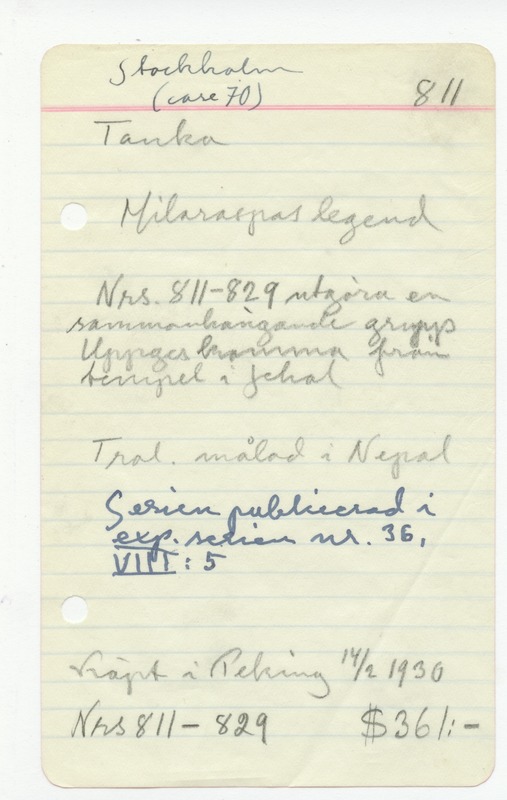 Stockholm
(case 70)
811
Tanka
Milaraspas legend
Nrs. 811-829 utgöra en
sammanhängande grupp
Uppges komma från
tempel i Jehol
Trol. målad i Nepal
Serien publicerad i
exp. serien nr. 36,
VIII : 5
Köpt i Peking 14/2 1930
Nrs 811 - 829 $361:-